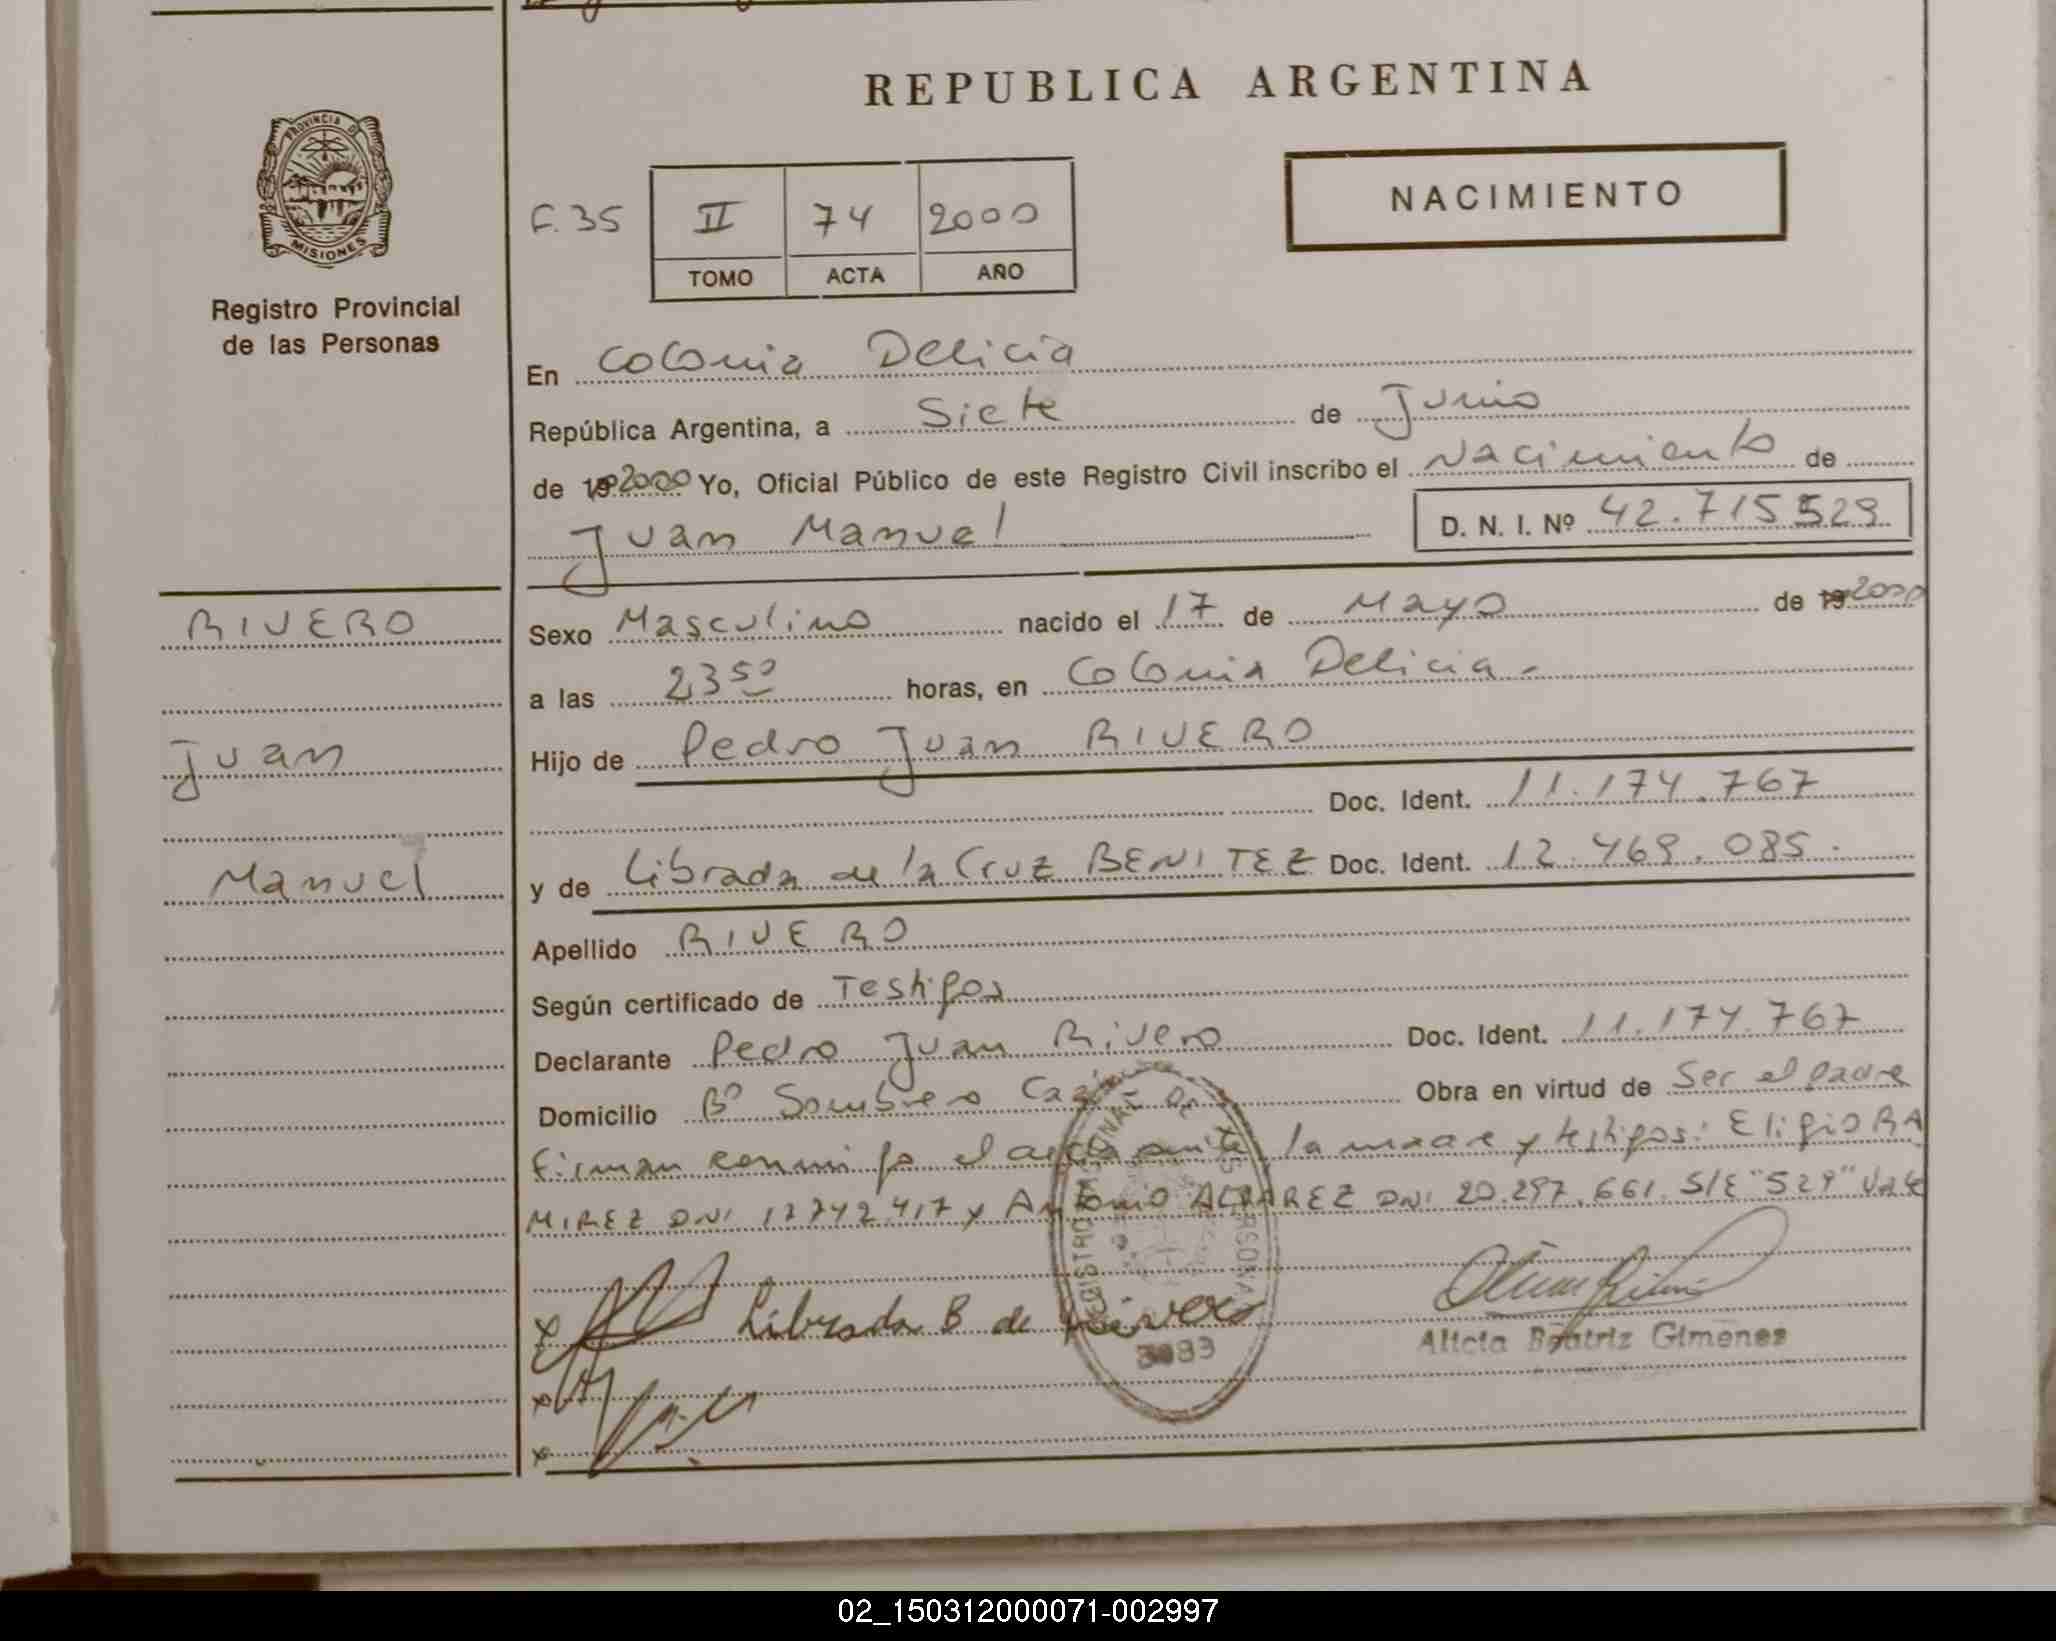 REPUBLICA ARGENTINA
PROVINCIA DE
MISIONES
Registro Provincial
de las Personas
NACIMIENTO
F. 35 II 74 2000
TOMO ACTA AÑO
En Colonia Delicia
República Argentina, a Siete de Junio
de 19 2000 Yo, Oficial Público de este Registro Civil inscribo el Nacimiento de
Juan Manuel D. N. I. Nº 42.715529
RIVERO
Juan
Manuel
Sexo Masculino nacido el 17 de Mayo de 19 2000
a las 23 50 horas, en Colonia Delicia -
Hijo de Pedro Juan RIVERO
Doc. Ident. 11.174.767
y de Librada de la Cruz BENITEZ Doc. Ident. 12.469.085.
Apellido RIVERO
Según certificado de Testigos
Declarante Pedro Juan Rivero Doc. Ident. 11.174.767
Domicilio Bº Sombrero Obra en virtud de Ser el padre
Firman conmigo el acta ante la madre y testigos: Eligio RA
MIREZ DNI 17742.417 y Antonio ALVAREZ DNI 20.297.661. S/E "529" Vale
Librada B de Rivero
3083
Alicia Beatriz Gimenez
02_150312000071-002997